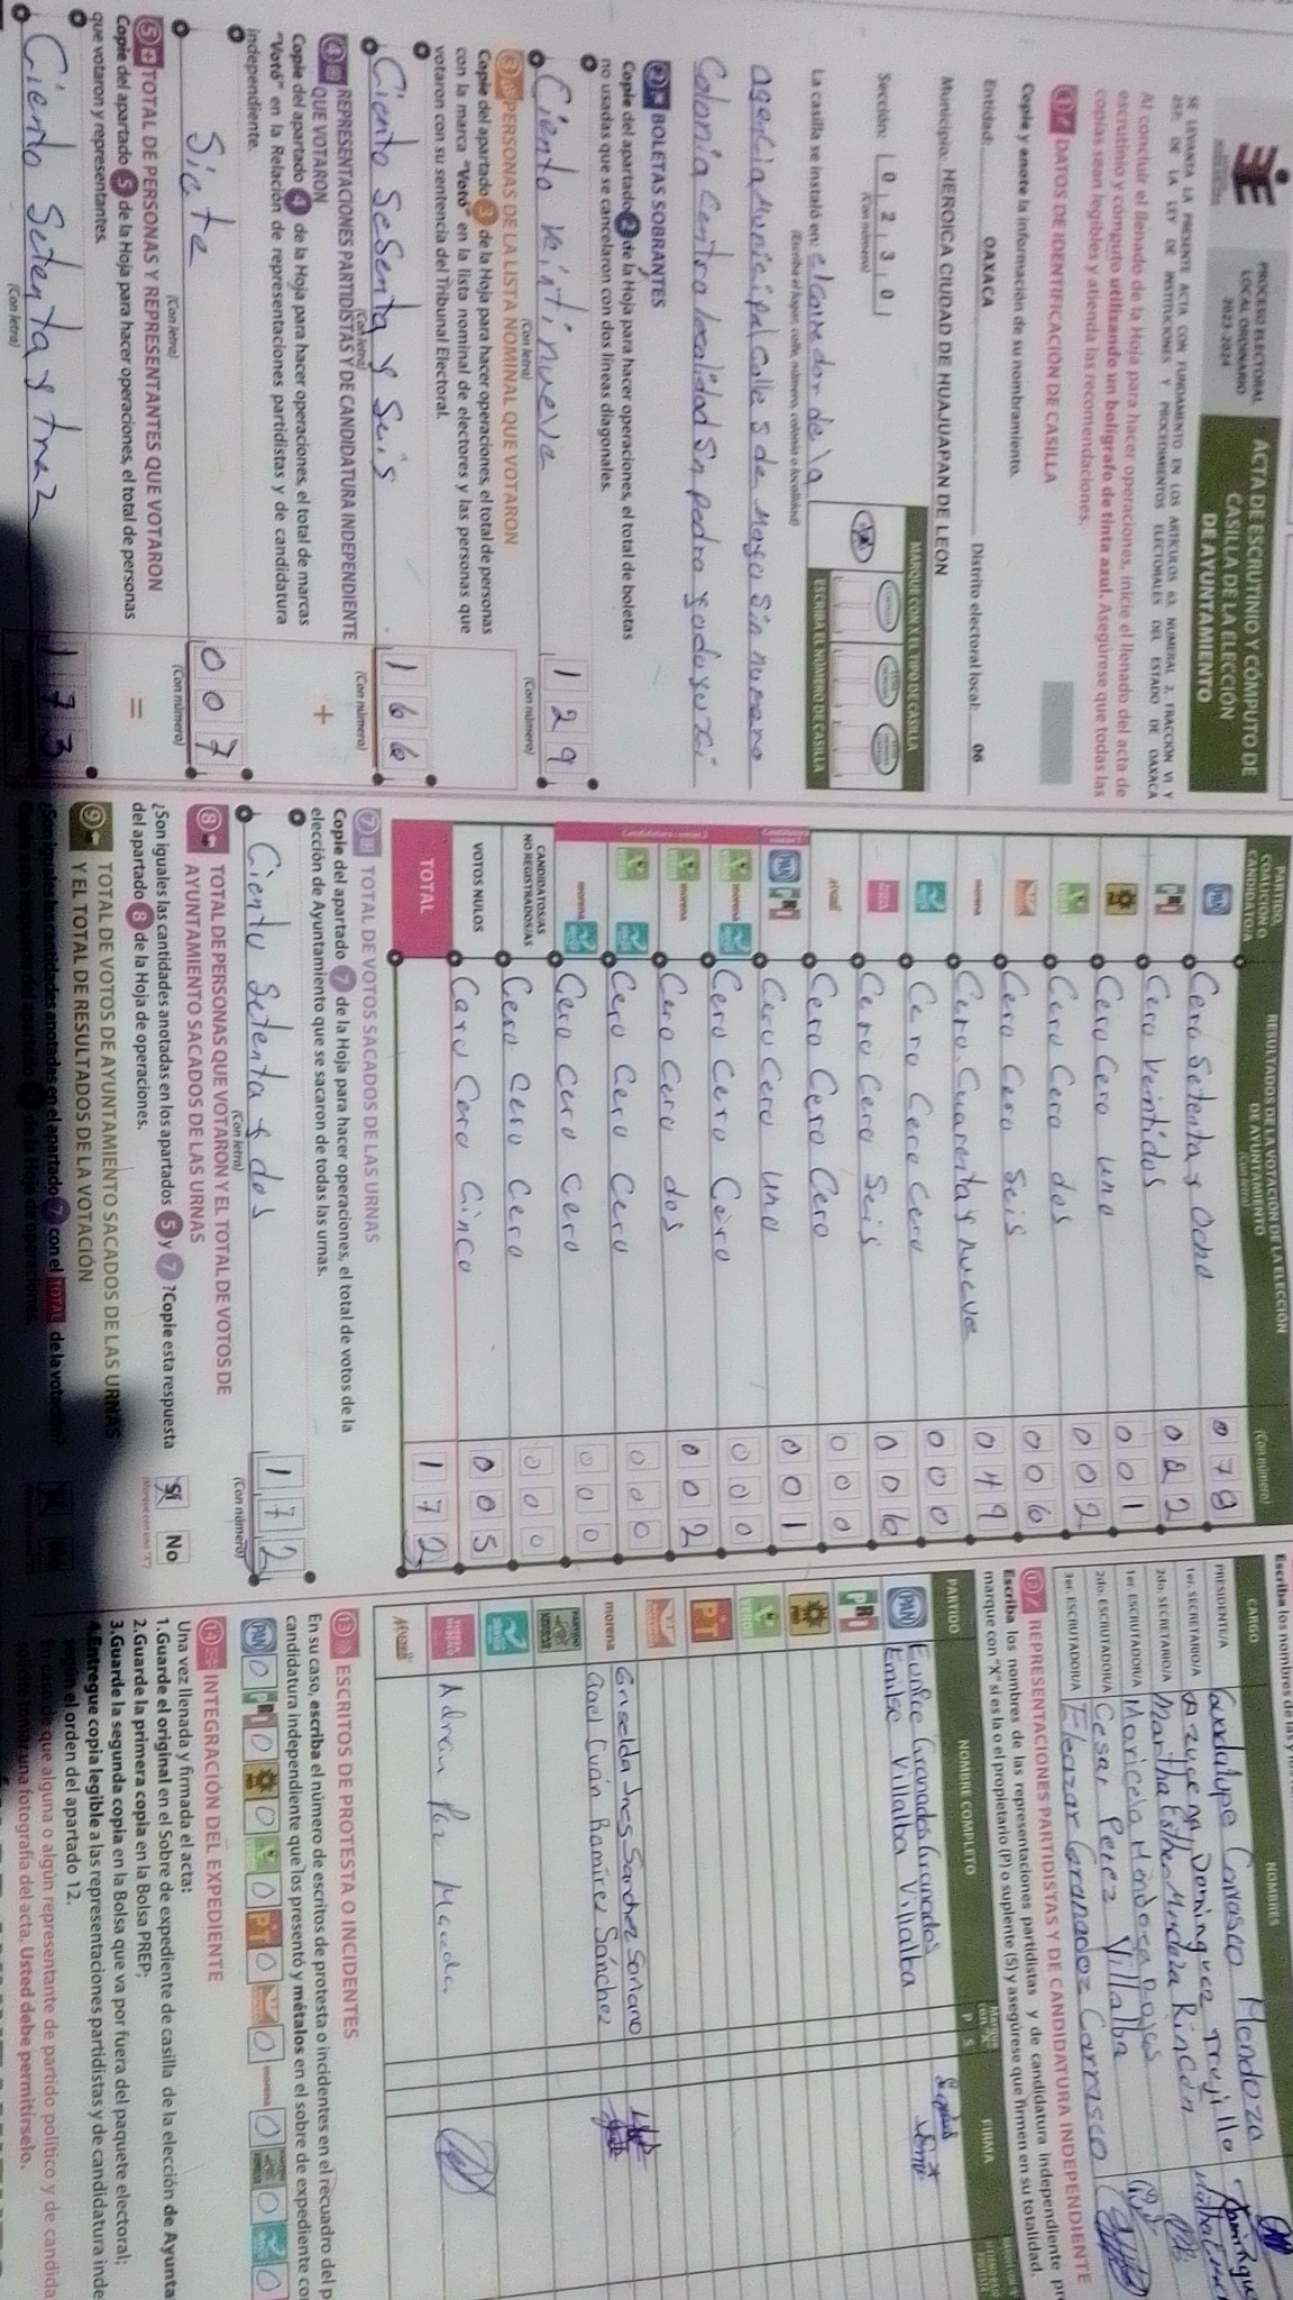 PROCESO ELECTORAL
LOCAL ORDINARIO
2023-2024
ACTA DE ESCRUTINIO Y CÓMPUTO DE
CASILLA DE LA ELECCIÓN
DE AYUNTAMIENTO
SE LEVANTA LA PRESENTE ACTA CON FUNDAMENTO EN LOS ARTÍCULOS 63, NUMERAL 2, FRACCIÓN VI Y
DE LA LEY DE INSTITUCIONES Y PROCEDIMIENTOS ELECTORALES DEL ESTADO DE OAXACA
Al concluir el llenado de la Hoja para hacer operaciones, inicie el llenado del acta de
escrutinio y cómputo utilizando un bolígrafo de tinta azul. Asegúrese que todas las
copias sean legibles y atienda las recomendaciones.
1 DATOS DE IDENTIFICACIÓN DE CASILLA
Copie y anote la información de su nombramiento.
Entidad: OAXACA Distrito electoral local: 06
Municipio: HEROICA CIUDAD DE HUAJUAPAN DE LEON
Sección: 0 2 3 0
(Con número)
MARQUE CON X EL TIPO DE CASILLA
ESCRIBA EL NÚMERO DE CASILLA
La casilla se instaló en: el corredor de la
(Escriba el lugar, calle, número, colonia o localidad)
agencia Municipal Calle 5 de Mayo Sin numero
Colonia Centro localidad Sn Pedro yodoyuxi
2 BOLETAS SOBRANTES
Copie del apartado 2 de la Hoja para hacer operaciones, el total de boletas
no usadas que se cancelaron con dos líneas diagonales.
Ciento veintinueve 1 2 9
(Con letra) (Con número)
3 PERSONAS DE LA LISTA NOMINAL QUE VOTARON
Copie del apartado 3 de la Hoja para hacer operaciones, el total de personas
con la marca "Votó" en la lista nominal de electores y las personas que
votaron con su sentencia del Tribunal Electoral.
Ciento Sesenta y Seis 1 6 6
(Con letra) (Con número)
4 REPRESENTACIONES PARTIDISTAS Y DE CANDIDATURA INDEPENDIENTE
QUE VOTARON +
Copie del apartado 4 de la Hoja para hacer operaciones, el total de marcas
"Votó" en la Relación de representaciones partidistas y de candidatura
independiente.
Siete 0 0 7
(Con letra) (Con número)
5 TOTAL DE PERSONAS Y REPRESENTANTES QUE VOTARON
Copie del apartado 5 de la Hoja para hacer operaciones, el total de personas =
que votaron y representantes.
Ciento Setenta y trez 1 7 3
(Con letra)
PARTIDO, COALICIÓN O CANDIDATO/A
RESULTADOS DE LA VOTACIÓN DE LA ELECCIÓN
DE AYUNTAMIENTO
(Con letra) (Con número)
PAN Cero Setenta y Ocho 0 7 8
PRI Cero Veintidos 0 2 2
PRD Cero Cero uno 0 0 1
Cero Cero dos 0 0 2
Cero Cero Seis 0 0 6
morena Cero. Cuarenta y nueve 0 4 9
Cero Cero Cero 0 0 0
Cero Cero Seis 0 0 6
Cero Cero Cero 0 0 0
PAN PRI Cero Cero uno 0 0 1
morena Cero Cero Cero 0 0 0
morena Cero Cero dos 0 0 2
Cero Cero Cero 0 0 0
morena Cero Cero Cero 0 0 0
CANDIDATOS/AS
NO REGISTRADOS/AS Cero Cero Cero 0 0 0
VOTOS NULOS Cero Cero Cinco 0 0 5
TOTAL 1 7 2
7 TOTAL DE VOTOS SACADOS DE LAS URNAS
Copie del apartado 7 de la Hoja para hacer operaciones, el total de votos de la
elección de Ayuntamiento que se sacaron de todas las urnas.
Ciento Setenta y dos 1 7 2
(Con letra) (Con número)
8 TOTAL DE PERSONAS QUE VOTARON Y EL TOTAL DE VOTOS DE
AYUNTAMIENTO SACADOS DE LAS URNAS
¿Son iguales las cantidades anotadas en los apartados 5 y 7? Copie esta respuesta
del apartado 8 de la Hoja de operaciones.
Sí No
9 TOTAL DE VOTOS DE AYUNTAMIENTO SACADOS DE LAS URNAS
Y EL TOTAL DE RESULTADOS DE LA VOTACIÓN
¿Son iguales las cantidades anotadas en el apartado 7 con el TOTAL de la votación?
Escriba los nombres de las y
CARGO NOMBRES
PRESIDENTE/A Guadalupe Carrasco Mendoza
1er. SECRETARIO/A Azucena Dominguez Trujillo
2do. SECRETARIO/A Martha Esther Mudeza Rincón
1er. ESCRUTADOR/A Maricela Mendoza Rojas
2do. ESCRUTADOR/A Cesar Perez Villalba
3er. ESCRUTADOR/A Eleazar Granados Carrasco
12 REPRESENTACIONES PARTIDISTAS Y DE CANDIDATURA INDEPENDIENTE
Escriba los nombres de las representaciones partidistas y de candidatura independiente pr
marque con "X" si es la o el propietario (P) o suplente (S) y asegúrese que firmen en su totalidad.
PARTIDO NOMBRE COMPLETO P S FIRMA
PAN Eunice Granados Granados
Emilse Villalba Villalba
PRI
PRD
VERDE
PT
morena Griselda Ines Sanchez Soriano
Gael Cuán Ramírez Sánchez
Adrian Paz
13 ESCRITOS DE PROTESTA O INCIDENTES
En su caso, escriba el número de escritos de protesta o incidentes en el recuadro del p
candidatura independiente que los presentó y métalos en el sobre de expediente co
PAN 0 PRI 0 PRD 0 0 PT 0 0 morena 0 0 0
14 INTEGRACIÓN DEL EXPEDIENTE
Una vez llenada y firmada el acta:
1. Guarde el original en el Sobre de expediente de casilla de la elección de Ayunta
2. Guarde la primera copia en la Bolsa PREP;
3. Guarde la segunda copia en la Bolsa que va por fuera del paquete electoral;
4. Entregue copia legible a las representaciones partidistas y de candidatura inde
según el orden del apartado 12.
que alguna o algún representante de partido político y de candida
tomar una fotografía del acta, Usted debe permitírselo.